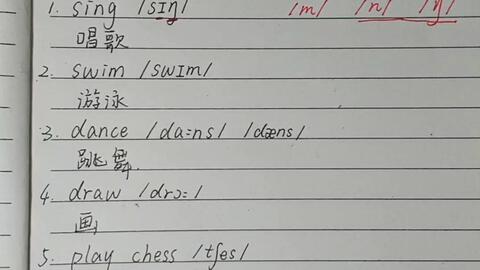 1. sing /sɪŋ/ /m/ /n/ /ŋ/
唱歌
2. swim /swɪm/
游泳
3. dance /da:ns/ /dæns/
跳舞
4. draw /drɔ:/
画
5. play chess /tʃes/